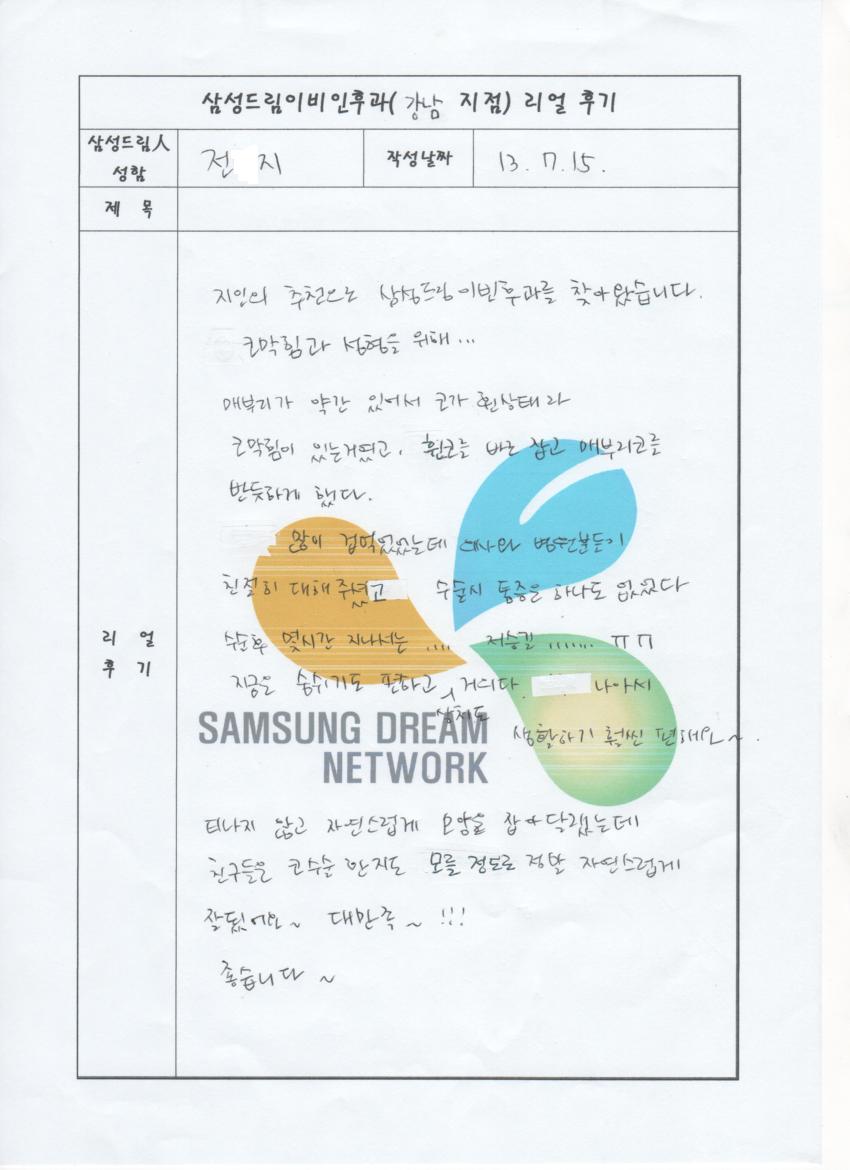 삼성드림이비인후과(강남 지점) 리얼 후기
삼성드림人 성함
전 지
작성날짜
13. 7. 15.
제 목
리 얼
후 기
지인의 추천으로 삼성드림이빈후과를 찾아왔습니다.
코막힘과 성형을 위해...
매부리가 약간 있어서 코가 휜상태라
코막힘이 있는거였고, 휜코를 바로 잡고 매부리코를
반듯하게 했다.
많이 겁먹었었는데 의사와 병원분들이
친절히 대해주셨고 수술시 통증은 하나도 없었다
수순후 몇시간 지나서는 .... 저승길 ....... ㅠㅠ
지금은 숨쉬기도 편하고 상처도 거의다 나아서
생활하기 훨씬 편해요~.
SAMSUNG DREAM
NETWORK
티나지 않고 자연스럽게 모양을 잡아달랬는데
친구들은 코수술 한지도 모를 정도로 정말 자연스럽게
잘됬어요~ 대만족~!!!
좋습니다~